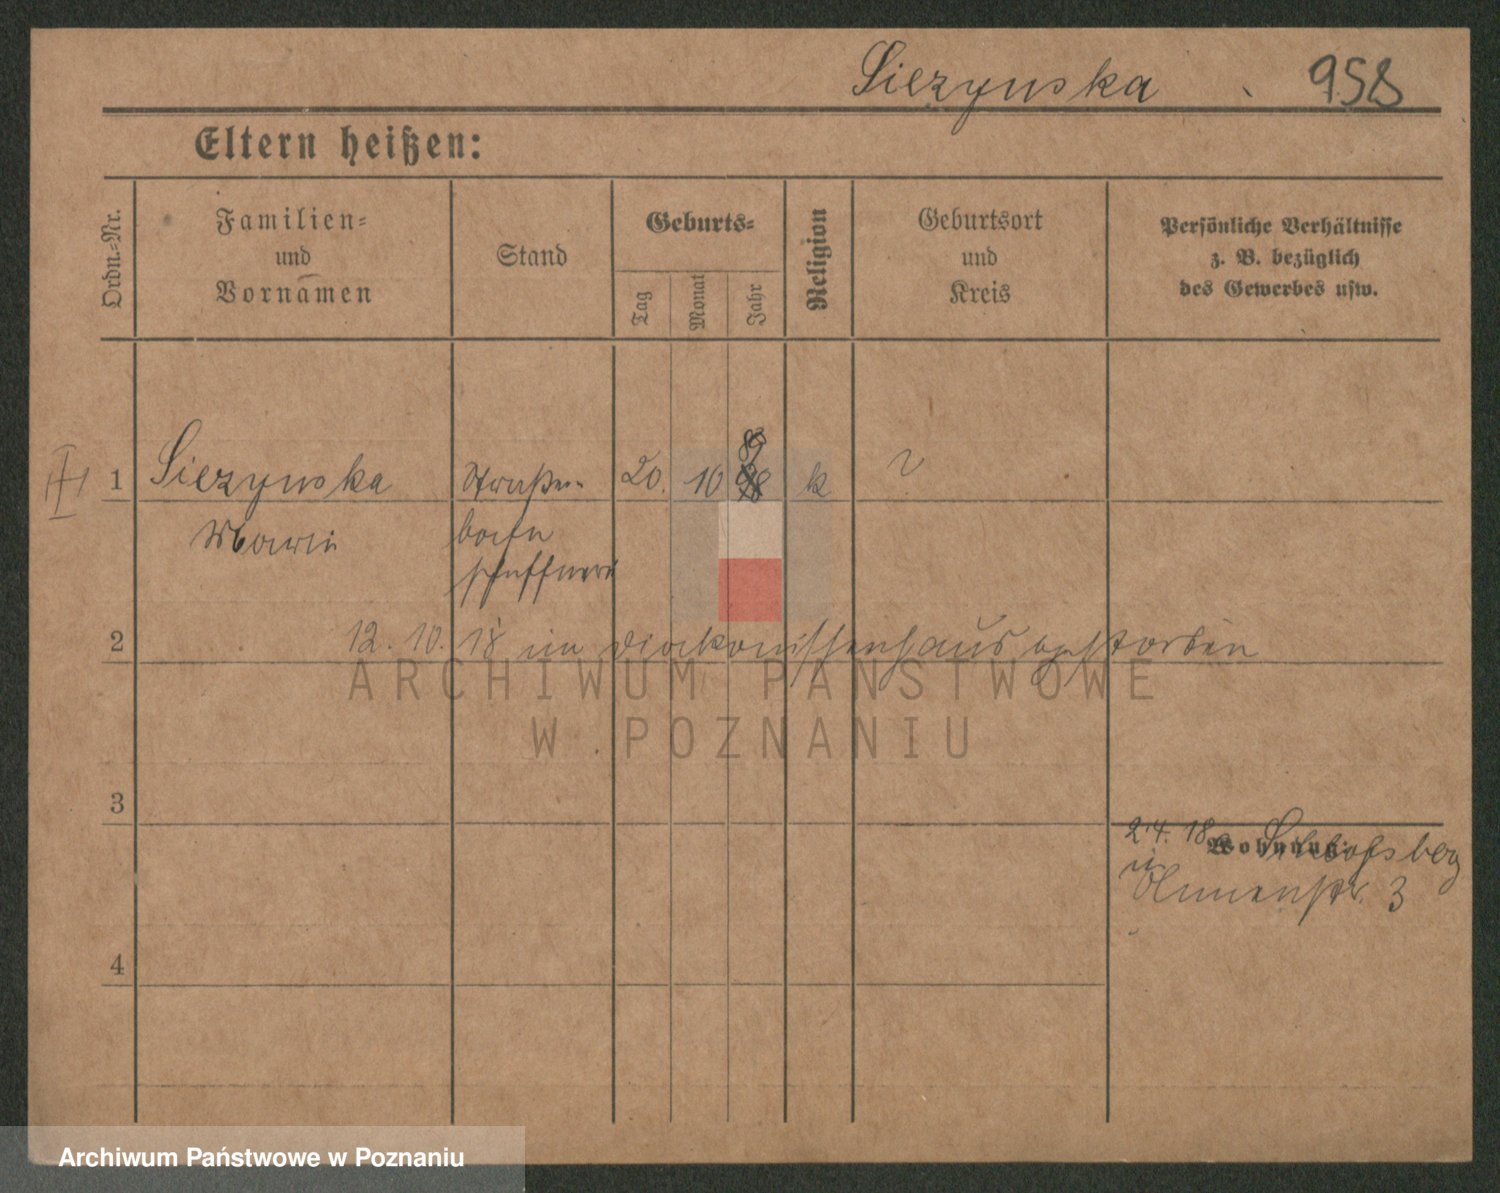 Siezynska 958
Eltern heißen:
Ordn.-Nr.
Familien- und Vornamen
Stand
Geburts-
Tag
Monat
Jahr
Religion
Geburtsort und Kreis
Persönliche Verhältnisse
z. B. bezüglich
des Gewerbes usw.
1 Siezynska Straßen- 20. 10 89 k ?
Marie bahn
schaffnerin
2
12. 10. 18 im Diakonissenhaus gestorben
ARCHIWUM PAŃSTWOWE
W POZNANIU
3
2.4.18
Wohnung:
Blumenstr. 3
4
Archiwum Państwowe w Poznaniu